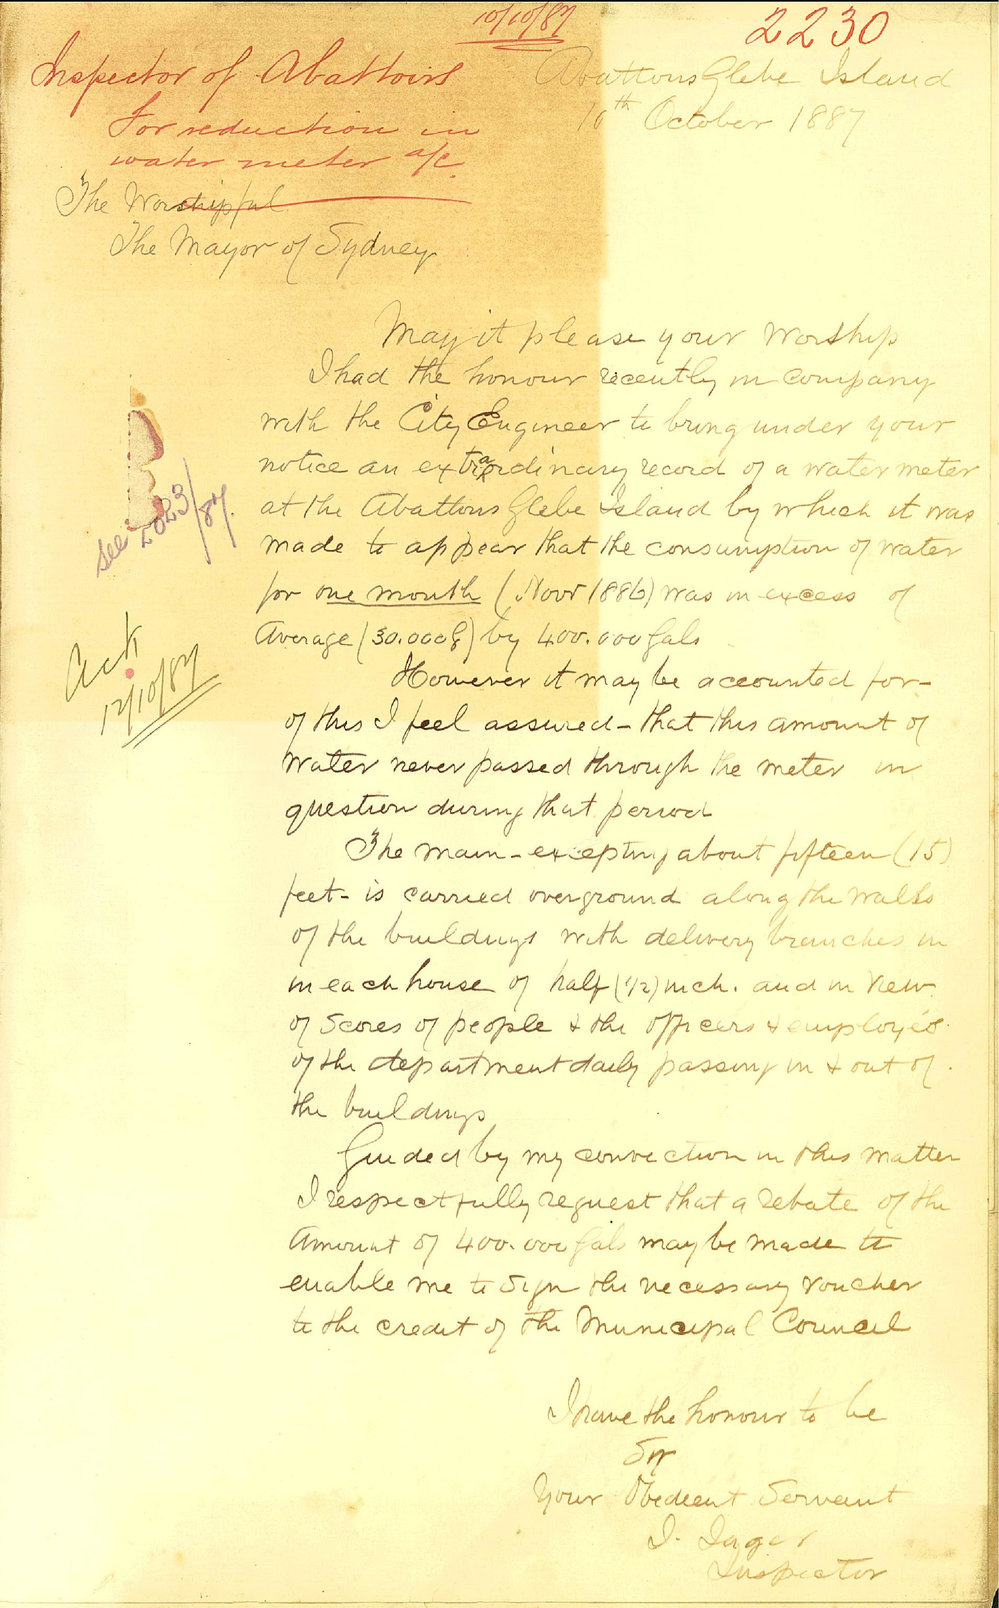 10/10/87
2230
Inspector of Abattoirs
For reduction in
water meter a/c.
Abattoirs Glebe Island
10th October 1887
The Worshipful
The Mayor of Sydney
May it please your Worship
I had the honour recently in company
with the City Engineer to bring under your
notice an extraordinary record of a water meter
at the Abattoirs Glebe Island by which it was
made to appear that the consumption of water
for one month (Novr 1886) was in excess of
Average (30.000g) by 400.000 Gals
However it may be accounted for-
of this I feel assured - that this amount of
Water never passed through the meter in
question during that period
The main - excepting about fifteen (15)
feet - is carried overground along the walls
of the buildings with delivery branches in
in each house of half (1/2) inch. and in view
of Scores of people & the officers & employés
of the department daily passing in & out of
the buildings
Guided by my conviction in this matter
I respectfully request that a rebate of the
Amount of 400.000 Gals may be made to
enable me to Sign the necessary voucher
to the credit of the Municipal Council
I have the honour to be
Sir
Your Obedient Servant
Inspector
see 2023/87.
Ack
12/10/87